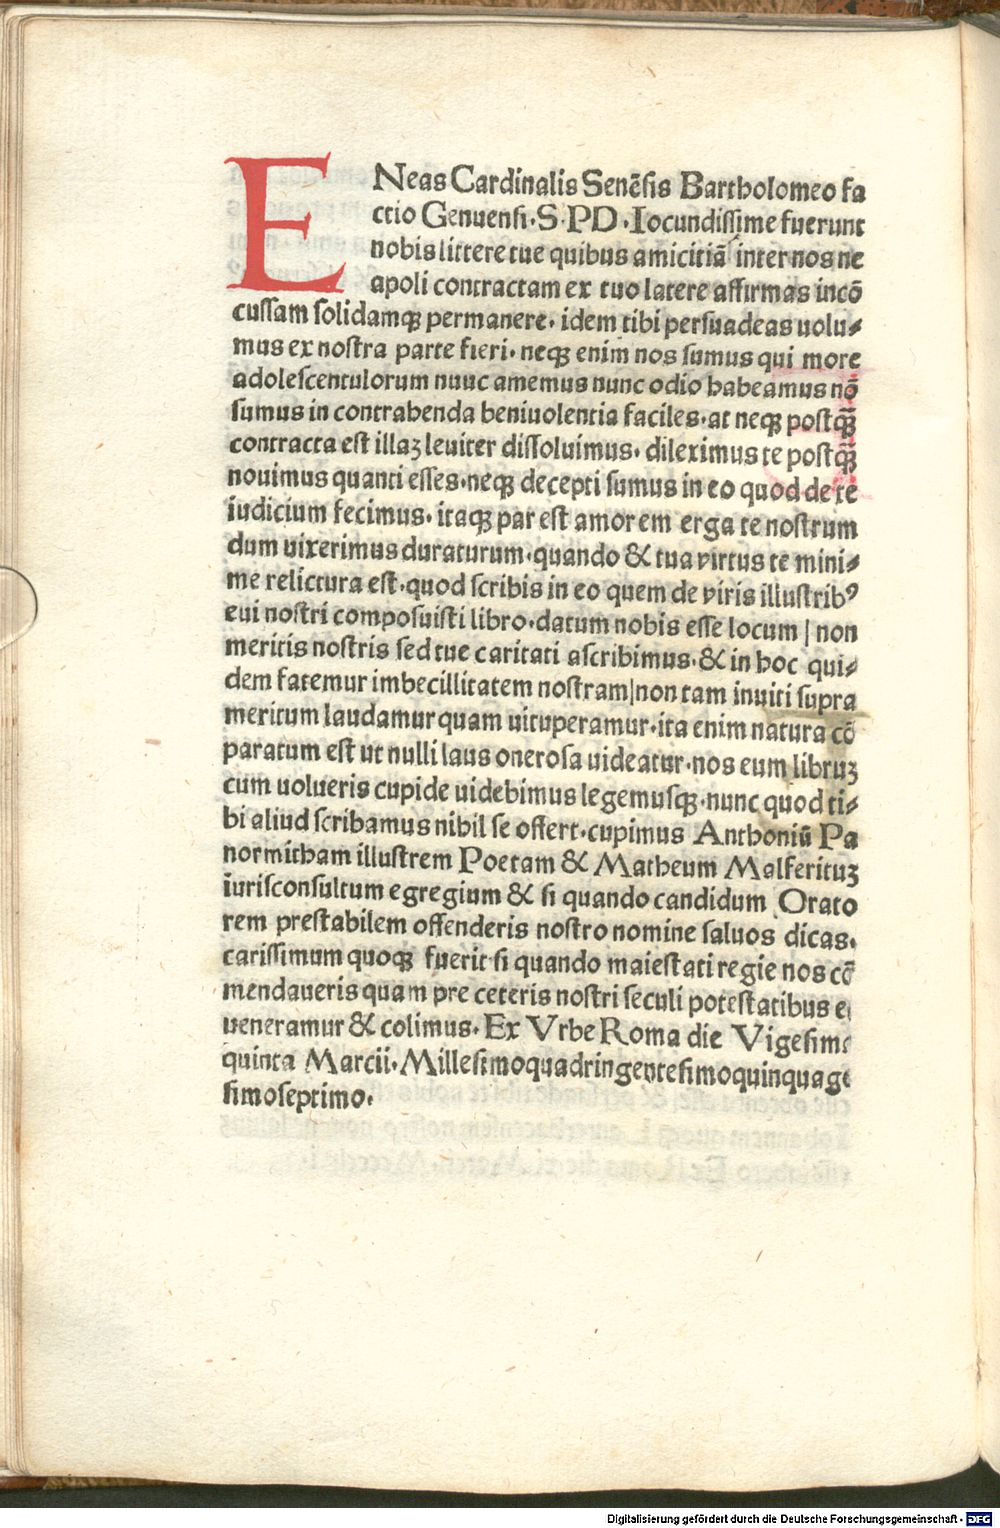 ENeas Cardinalis Senēsis Bartholomeo fa
ctio Genuensi· S· PD· Iocundissime fuerunt
nobis littere tue quibus amicitiā inter nos ne
apoli contractam ex tuo latere affirmas incō
cussam solidamqꝫ permanere· idem tibi persuadeas uolu⸗
mus ex nostra parte fieri· neqꝫ enim nos sumus qui more
adolescentulorum nunc amemus nunc odio habeamus nō
sumus in contrahenda beniuolentia faciles· at neqꝫ postqꝫ̄
contracta est illaꝫ leuiter dissoluimus· dileximus te postqꝫ̄
nouimus quanti esses· neqꝫ decepti sumus in eo quod de te
iudicium fecimus· itaqꝫ par est amorem erga te nostrum
dum uixerimus duraturum· quando & tua virtus te mini⸗
me relictura est· quod scribis in eo quem de viris illustribꝰ
eui nostri composuisti libro· datum nobis esse locum | non
meritis nostris sed tue caritati ascribimus· & in hoc qui⸗
dem fatemur imbecillitatem nostram | non tam inuiti supra
meritum laudamur quam uituperamur· ita enim natura cō
paratum est ut nulli laus onerosa uideatur· nos eum libruꝫ
cum uolueris cupide uidebimus legemusqꝫ· nunc quod ti⸗
bi aliud scribamus nihil se offert· cupimus Anthoniū Pa
normitham illustrem Poetam & Matheum Malferituꝫ
iurisconsultum egregium & si quando candidum Orato
rem prestabilem offenderis nostro nomine saluos dicas·
carissimum quoqꝫ fuerit si quando maiestati regie nos cō
mendaueris quam pre ceteris nostri seculi potestatibus e
ueneramur & colimus· Ex Vrbe Roma die Vigesima
quinta Marcii· Millesimoquadringentesimoquinquage
simoseptimo·
Digitalisierung gefördert durch die Deutsche Forschungsgemeinschaft - DFG